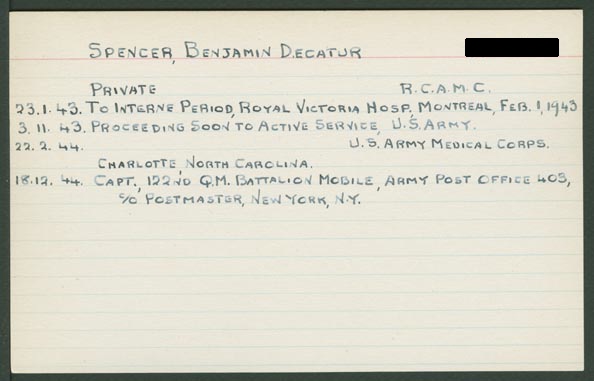 SPENCER, BENJAMIN DECATUR
PRIVATE R.C.A.M.C.
23.1.43. TO INTERNE PERIOD, ROYAL VICTORIA HOSP., MONTREAL, FEB. 1, 1943
3.11.43. PROCEEDING SOON TO ACTIVE SERVICE, U.S. ARMY.
22.2.44. U.S. ARMY MEDICAL CORPS.
CHARLOTTE, NORTH CAROLINA.
18.12.44. CAPT., 122ND Q.M. BATTALION MOBILE, ARMY POST OFFICE 403,
c/o POSTMASTER, NEW YORK, N.Y.